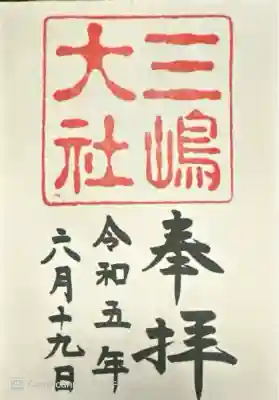 三嶋
大社
奉拝
令和五年
六月十九日